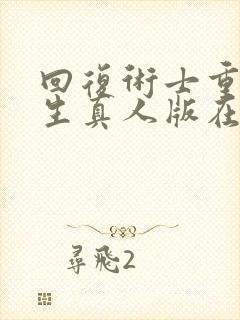 回復術士重
生真人版在
尋飛2